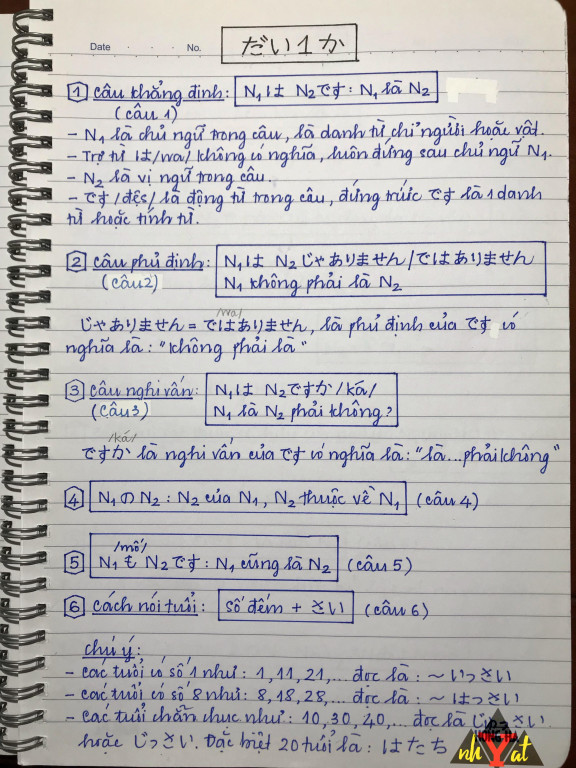 Date . . . No. だい1か
1 Câu khẳng định: N₁は N₂です: N₁ là N₂
(câu 1)
- N₁ là chủ ngữ trong câu, là danh từ chỉ người hoặc vật.
- Trợ từ は/wa/ không có nghĩa, luôn đứng sau chủ ngữ N₁.
- N₂ là vị ngữ trong câu.
- です/đês/ là động từ trong câu, đứng trước です là 1 danh
từ hoặc tính từ.
2 Câu phủ định: N₁は N₂じゃありません/ではありません
(câu2) N₁ không phải là N₂
/wa/
じゃありません = ではありません, là phủ định của です có
nghĩa là: "không phải là"
3 Câu nghi vấn: N₁は N₂ですか/ká/
(câu3) N₁ là N₂ phải không?
/ká/
ですか là nghi vấn của です có nghĩa là: "là...phải không"
4 N₁のN₂: N₂ của N₁, N₂ thuộc về N₁ (câu 4)
/mố/
5 N₁も N₂です: N₁ cũng là N₂ (câu 5)
6 Cách nói tuổi: số đếm + さい (câu 6)
chú ý:
- các tuổi có số 1 như: 1, 11, 21,... đọc là: ~いっさい
- các tuổi có số 8 như: 8, 18, 28,... đọc là: ~はっさい
- các tuổi chẵn chục như: 10, 30, 40,... đọc là さい
hoặc じっさい. Đặc biệt 20 tuổi là: はたち
nhật